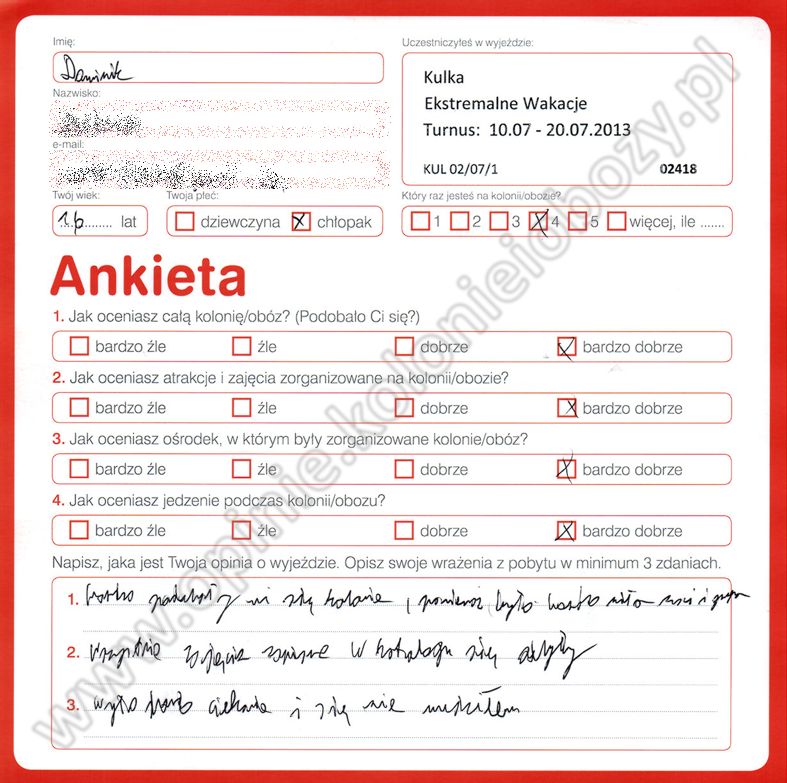 Imię:
Dominik
Uczestniczyłeś w wyjeździe:
Kulka
Ekstremalne Wakacje
Turnus: 10.07 - 20.07.2013
KUL 02/07/1 02418
Nazwisko:
e-mail:
Twój wiek:
16 lat
Twoja płeć:
dziewczyna chłopak
Który raz jesteś na kolonii/obozie?
1 2 3 4 5 więcej, ile .......
Ankieta
1. Jak oceniasz całą kolonię/obóz? (Podobało Ci się?)
bardzo źle źle dobrze bardzo dobrze
2. Jak oceniasz atrakcje i zajęcia zorganizowane na kolonii/obozie?
bardzo źle źle dobrze bardzo dobrze
3. Jak oceniasz ośrodek, w którym były zorganizowane kolonie/obóz?
bardzo źle źle dobrze bardzo dobrze
4. Jak oceniasz jedzenie podczas kolonii/obozu?
bardzo źle źle dobrze bardzo dobrze
Napisz, jaka jest Twoja opinia o wyjeździe. Opisz swoje wrażenia z pobytu w minimum 3 zdaniach.
1. bardzo podobały mi się kolonie, ponieważ było bardzo miło
2. wszystkie zajęcia zapisane w katalogu się odbyły
3. było bardzo ciekawie i się nie nudziłem
www.opinie.kolonieiobozy.pl